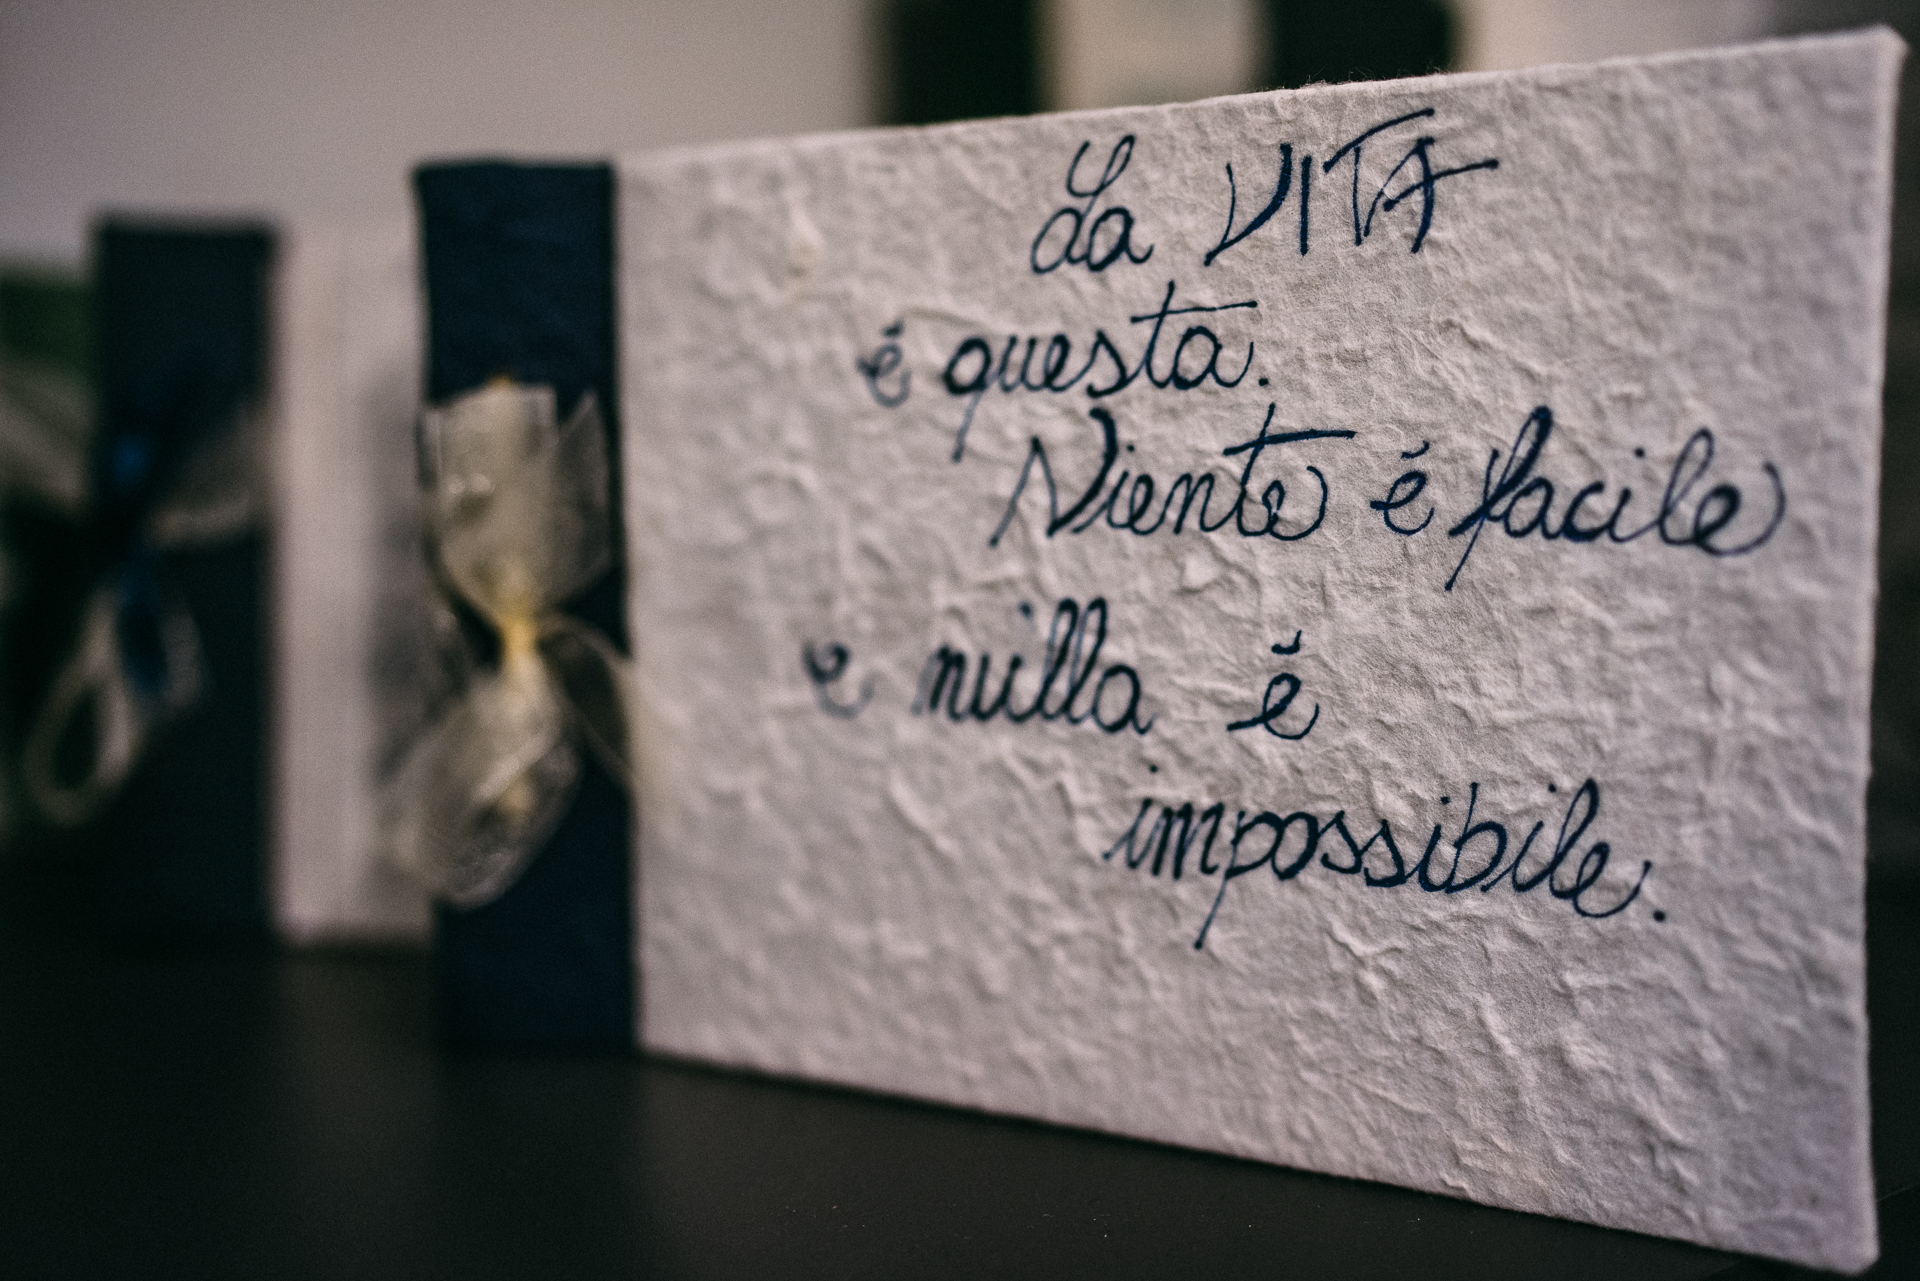 La VITA
è questa.
Niente è facile
e nulla è
impossibile.